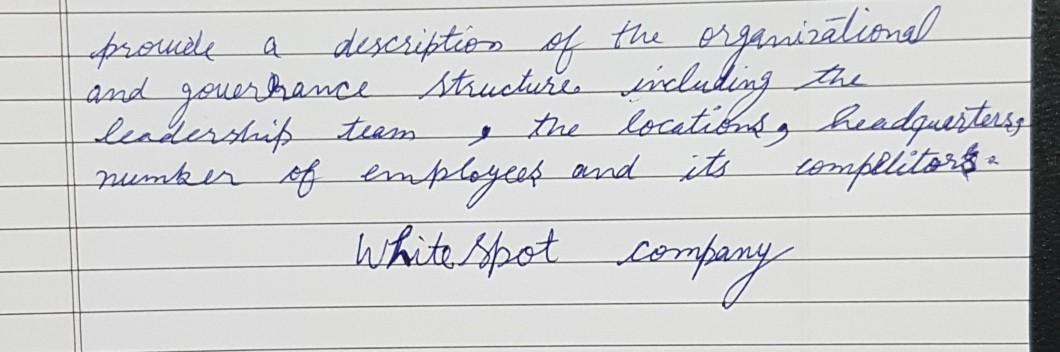 provide a description of the organizational
and governance structure. including the
leadership team , the locations, headquarters,
number of employees and its competitors.
White Spot company